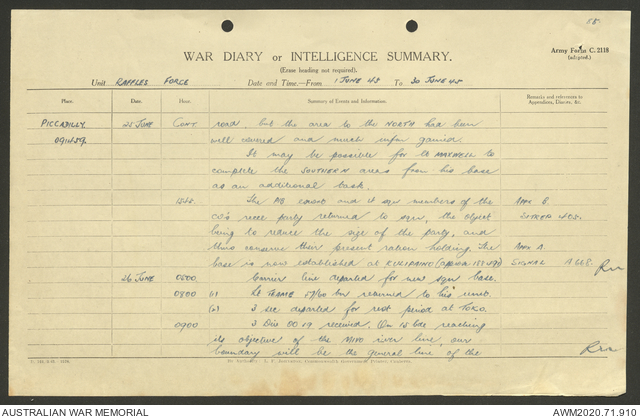 58.
Army Form C. 2118
(adapted.)
WAR DIARY or INTELLIGENCE SUMMARY.
(Erase heading not required).
Unit RAFFLES FORCE Date and Time—From 1 JUNE 45 To 30 JUNE 45
Place. Date. Hour. Summary of Events and Information. Remarks and references to Appendices, Diaries, &c.
PICCADILLY 25 JUNE CONT. road, but the area to the NORTH had been
091459. well covered and much infm gained.
It may be possible for Lt MAXWELL to
complete the SOUTHERN areas from his base
as an additional task.
The PIB escort and 4 sqn members of the APPX B.
CO's recce party returned to sqn, the object SITREP 405.
being to reduce the size of the party, and
thus conserve their present ration holding. The APPX A.
base is now established at SIGNAL A 668.
26 JUNE 0500. Carrier line departed for new sqn base.
0800 Lt 57/60 bn returned to his unit.
(2) 3 sec departed for rest period at TOKO.
0900 3 Div OO 19 received. On 15 bde reaching
its objective of the MIVO river line, our
boundary will be the general line of the
AUSTRALIAN WAR MEMORIAL AWM2020.71.910